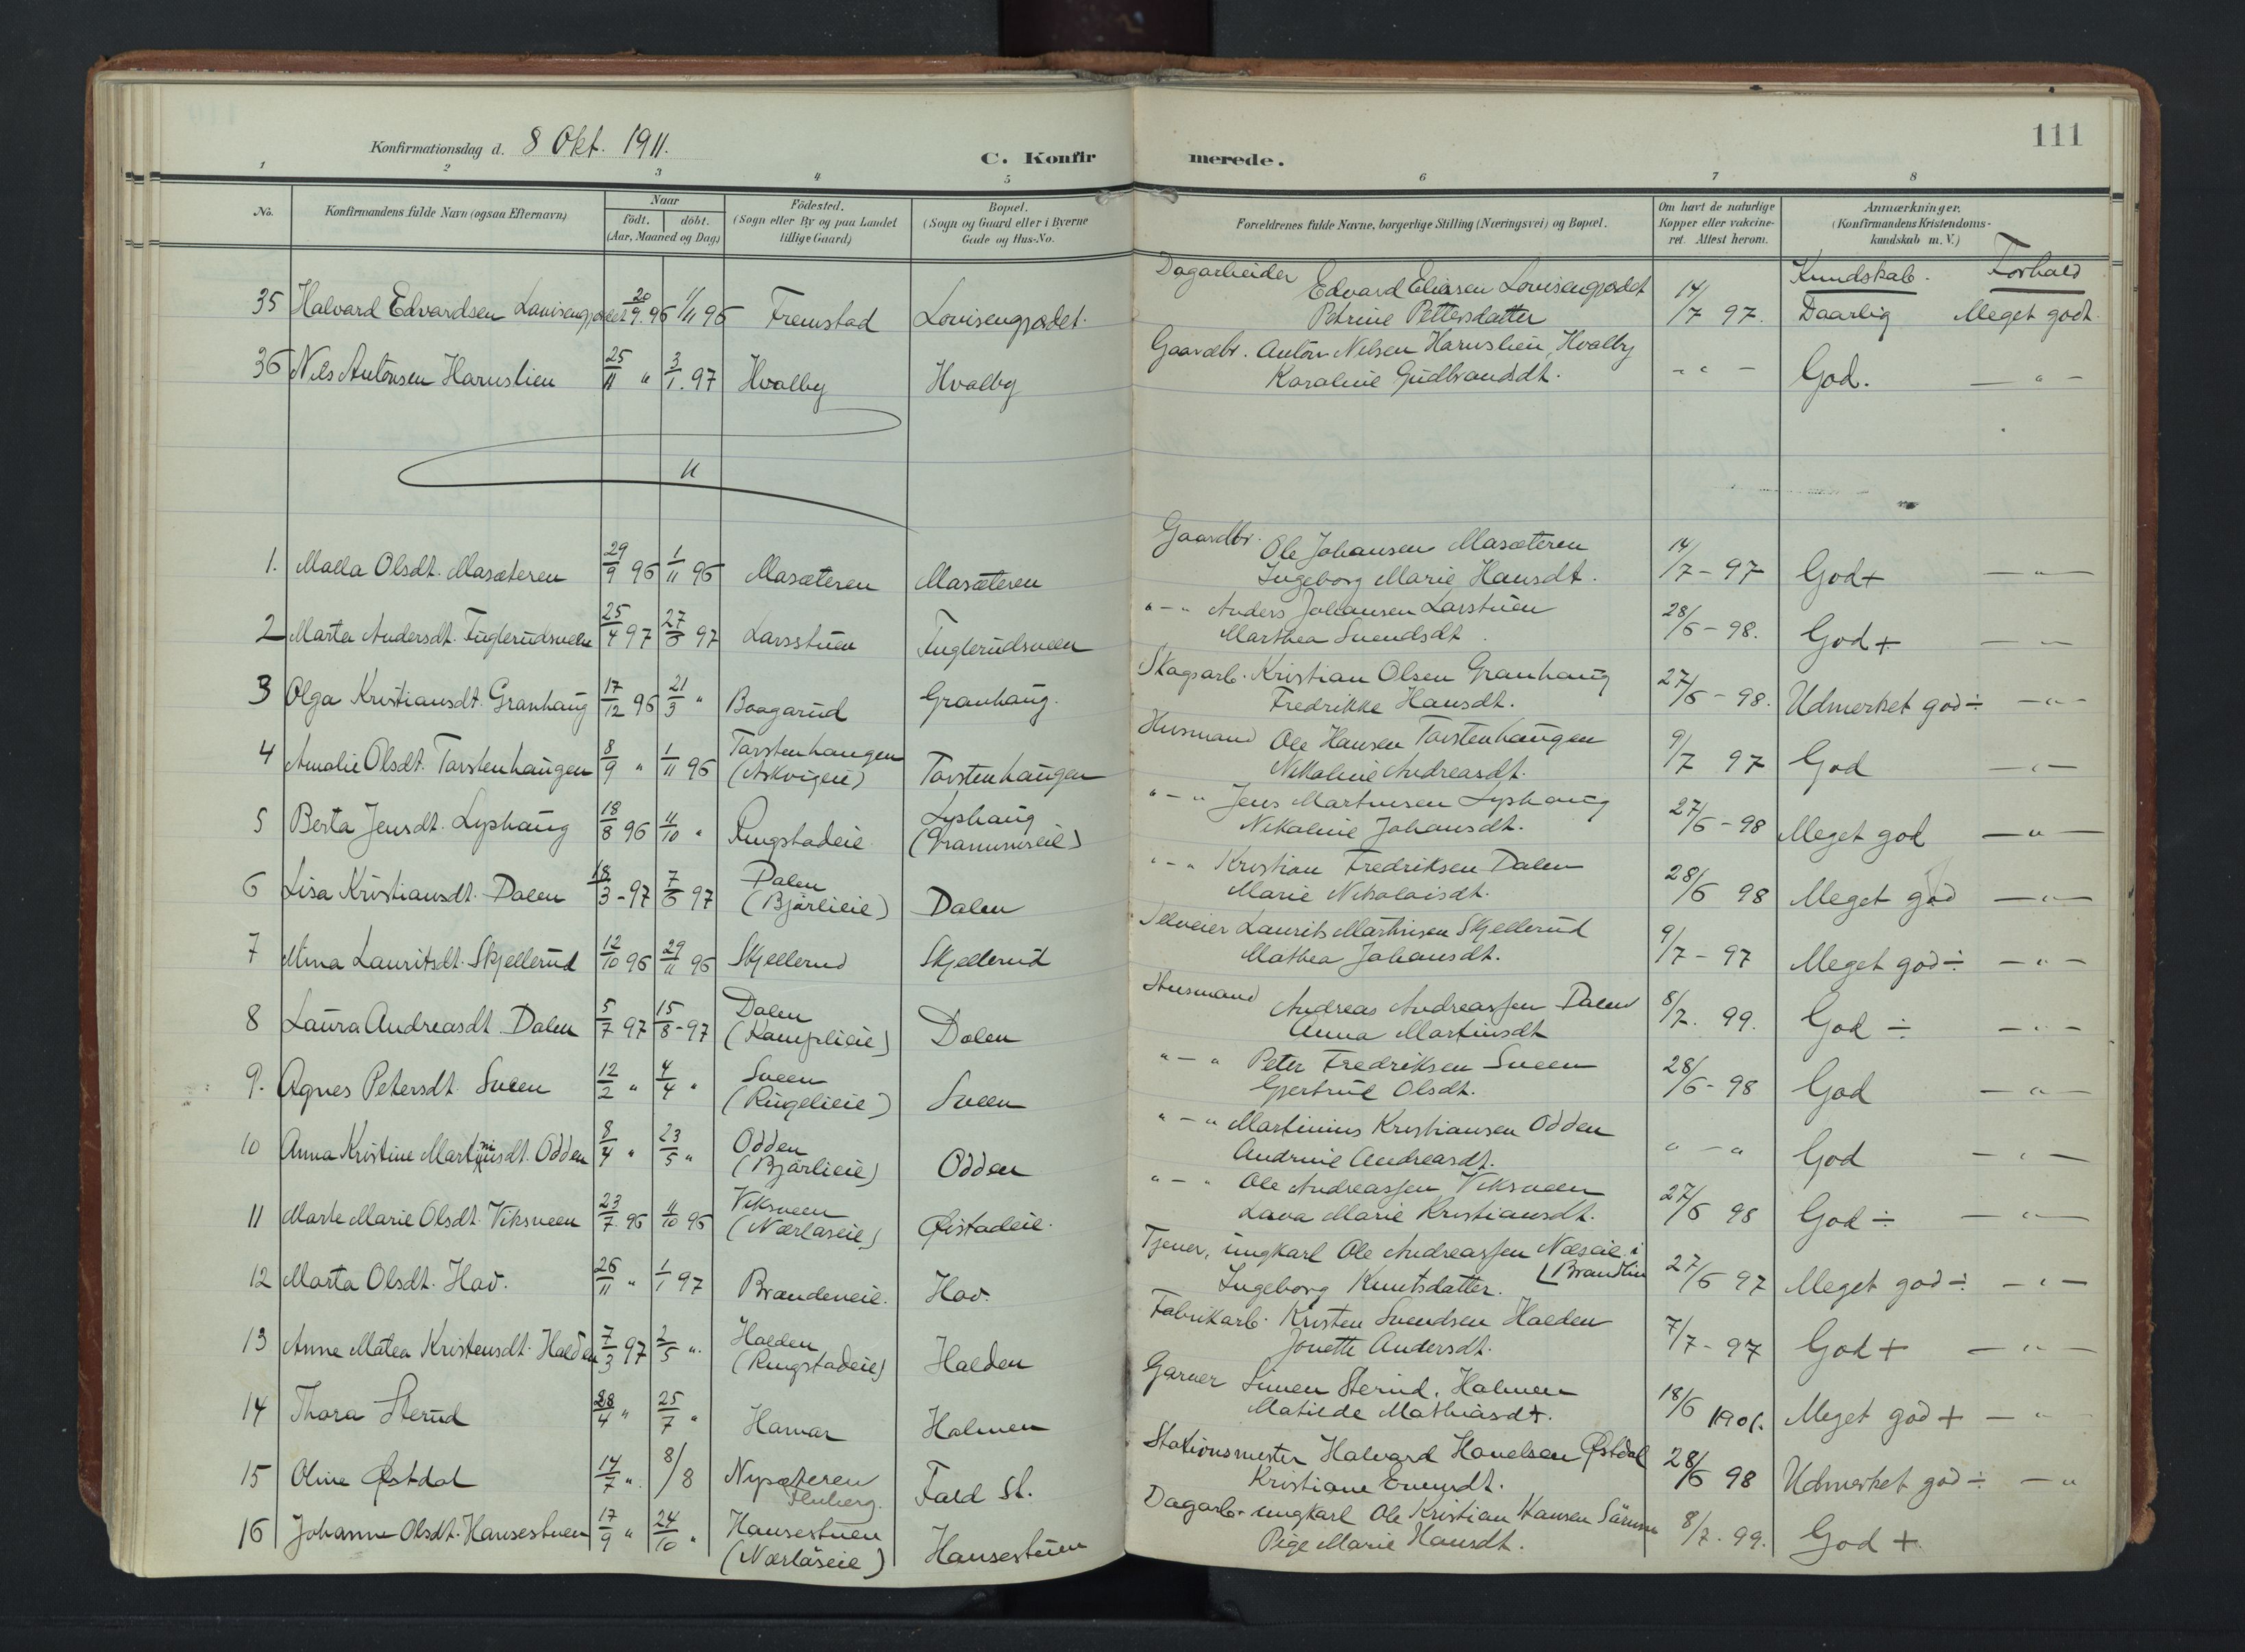 111
Konfirmationsdag d. 8 Okt. 1911.
C. Konfirmerede.
1 2 3 4 5 6 7 8
No.
Konfirmandens fulde Navn (ogsaa Efternavn)
Naar
födt. döbt.
(Aar, Maaned og Dag)
Födested.
(Sogn eller By og paa Landet
tillige Gaard)
Bopæl.
(Sogn og Gaard eller i Byerne
Gade og Hus-No.
Forældrenes fulde Navne, borgerlige Stilling (Næringsvei) og Bopæl.
Om havt de naturlige
Kopper eller vakcine-
ret. Attest herom.
Anmærkninger.
(Konfirmandens Kristendoms-
kundskab m. V.)
Kundskab. Forhold
35 Halvard Edvardsen Lovisengjædet 20/9. 96 1/11 96 Fremstad Lovisengjædet.
Dagarbeider Edvard Eliasen Lovisengjædet
Petrine Pettersdatter 14/7 97. Daarlig Meget godt.
36 Nils Antonsen Haruslien 25/11 " 3/1. 97 Hvalby Hvalby
Gaardbr. Anton Nilsen Haruslien, Hvalby
Karoline Gudbrandsdt. - " - God. — " —
11
1. Maela Olsdt. Masæteren 29/9 96 1/11 96 Masæteren Masæteren
Gaardbr. Ole Johansen Masæteren
Ingeborg Marie Hansdt. 14/7 - 97 God + — " —
2 Marta Andersdt. Fuglerudsveen 25/4 97 27/6 97 Larsstuen Fuglerudsveen
" - " Anders Johansen Larstuen
Marthea Svendsdt. 28/6 - 98. God + — " —
3 Olga Kristiansdt. Granhaug 17/12 96 21/3 " Baagarud Granhaug.
Skogsarb. Kristian Olsen Granhaug
Fredrikke Hansdt. 27/6 - 98. Udmerket god ÷ — " —
4 Amalie Olsdt. Torstenhaugen 8/9 " 1/11 96 Torstenhaugen
(Askvigeie) Torstenhaugen
Husmand Ole Hansen Torstenhaugen
Nikoline Andreasdt. 9/7 97 God — " —
5 Berta Jensdt. Lyshaug 18/8 96 11/10 " Ringstadeie Lyshaug
" - " Jens Martinsen Lyshaug
Nikoline Johansdt. 27/6 - 98 Meget god — " —
6 Lisa Kristiansdt. Dalen 18/3 - 97 7/6 97 Dalen
(Bjørlieie) Dalen
" - " Kristian Fredriksen Dalen
Marie Nikolaisdt. 28/6 98 Meget god — " —
7 Mina Lauritsdt. Skjellerud 12/10 96 29/11 96 Skjellerud Skjellerud
Selveier Laurits Martinsen Skjellerud
Mathea Johansdt. 9/7 - 97 Meget god ÷ — " —
8 Laura Andreasdt. Dalen 5/7 97 15/8 - 97 Dalen
(Kamplieie) Dalen
Husmand Andreas Andreassen Dalen
Anna Martinsdt 8/7. 99. God ÷ — " —
9. Agnes Petersdt. Sveen 12/2 " 4/4 " Sveen
(Ringelieie) Sveen
" - " Peter Fredriksen Sveen
Gjertrud Olsdt. 28/6 - 98 God — " —
10 Anna Kristine Martinusdt. Odden 8/4 " 23/5 " Odden
(Bjørlieie) Odden
" - " Martinius Kristiansen Odden
Andrine Andreasdt. " - " God — " —
11 Marte Marie Olsdt. Viksveen 23/7 96 11/10 96 Viksveen
(Nærlaseie) Øistadeie.
" - " Ole Andreassen Viksveen
Lava Marie Kristiansdt. 27/6 98 God ÷ — " —
12 Marta Olsdt. Hov. 26/11 " 1/1 97 Brandeneie. Hov.
Tjener, ungkarl Ole Andreassen Næseie i
Ingeborg Knutsdatter. (Brandlin 27/6 97 Meget god ÷ — " —
13 Anne Matea Kristensdt. Halden 7/3 97 2/5 " Halden
(Ringstadeie) Halden
Fabrikarb. Kristen Svendsen Halden
Jonette Andersdt. 7/7 - 97 God + — " —
14 Thora Sterud 28/4 " 25/7 " Hamar Holmen
Garver Simen Sterud, Holmen
Matilde Mathiasdt. 18/6 1901. Meget god + — " —
15 Oline Østdal 14/7 " 8/8 Nysæteren
Fald St.
Stationsmester Halvard Hovelsen Østdal
Kristiane Evensdt. 28/6 98 Udmerket god ÷ — "
16 Johanne Olsdt. Hansestuen 17/9 " 24/10 " Hansestuen
(Nærlaseie) Hansestuen
Dagarb. ungkarl Ole Kristian Hansen
Pige Marie Hansdt. 8/7. 99. God +